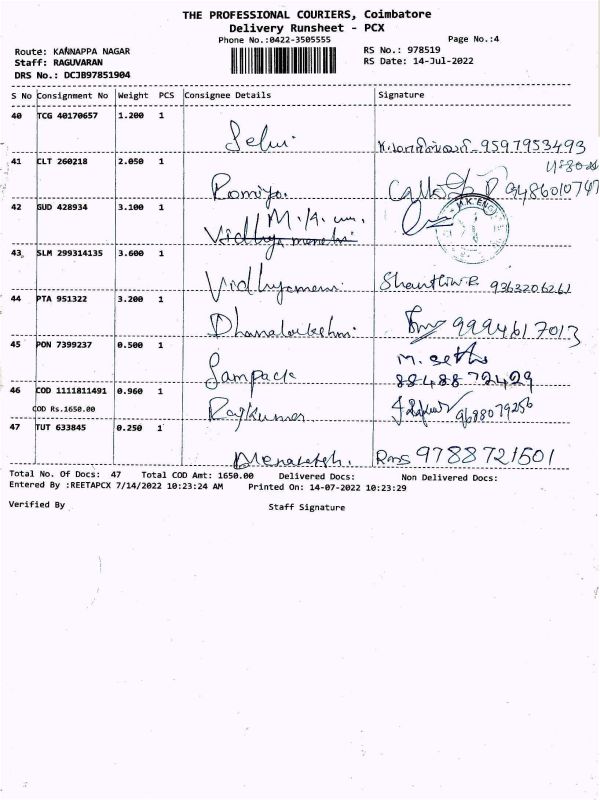 THE PROFESSIONAL COURIERS, Coimbatore
Delivery Runsheet - PCX
Phone No.:0422-3505555
Page No.:4
Route: KANNAPPA NAGAR
RS No.: 978519
Staff: RAGUVARAN
RS Date: 14-Jul-2022
DRS No.: DCJB97851904
S No Consignment No Weight PCS Consignee Details Signature
40 TCG 40170657 1.200 1
Selvi 9597953493
41 CLT 260218 2.050 1
Romiya. 9486010747
42 GUD 428934 3.100 1
M.K. ENG
43 SLM 299314135 3.600 1
Vidhyameni 9363206261
44 PTA 951322 3.200 1
Dhanalakshmi 9994617013
45 PON 7399237 0.500 1
M. Sethu
Sampack 88488 72429
46 COD 1111811491 0.960 1
COD Rs.1650.00
Rajkumar 9688079256
47 TUT 633845 0.250 1
9788721501
Total No. Of Docs: 47 Total COD Amt: 1650.00 Delivered Docs: Non Delivered Docs:
Entered By :REETAPCX 7/14/2022 10:23:24 AM Printed On: 14-07-2022 10:23:29
Verified By Staff Signature